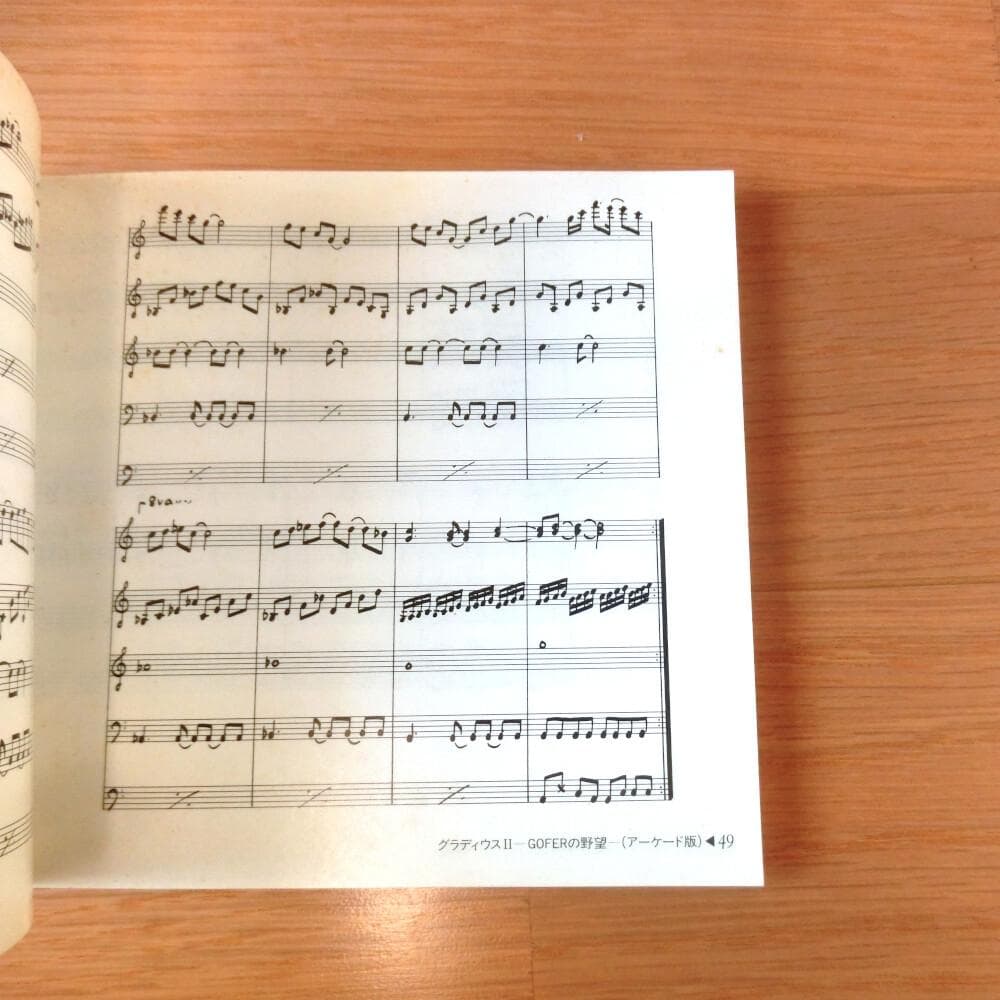 8va
グラディウスII—GOFERの野望—(アーケード版)◀49